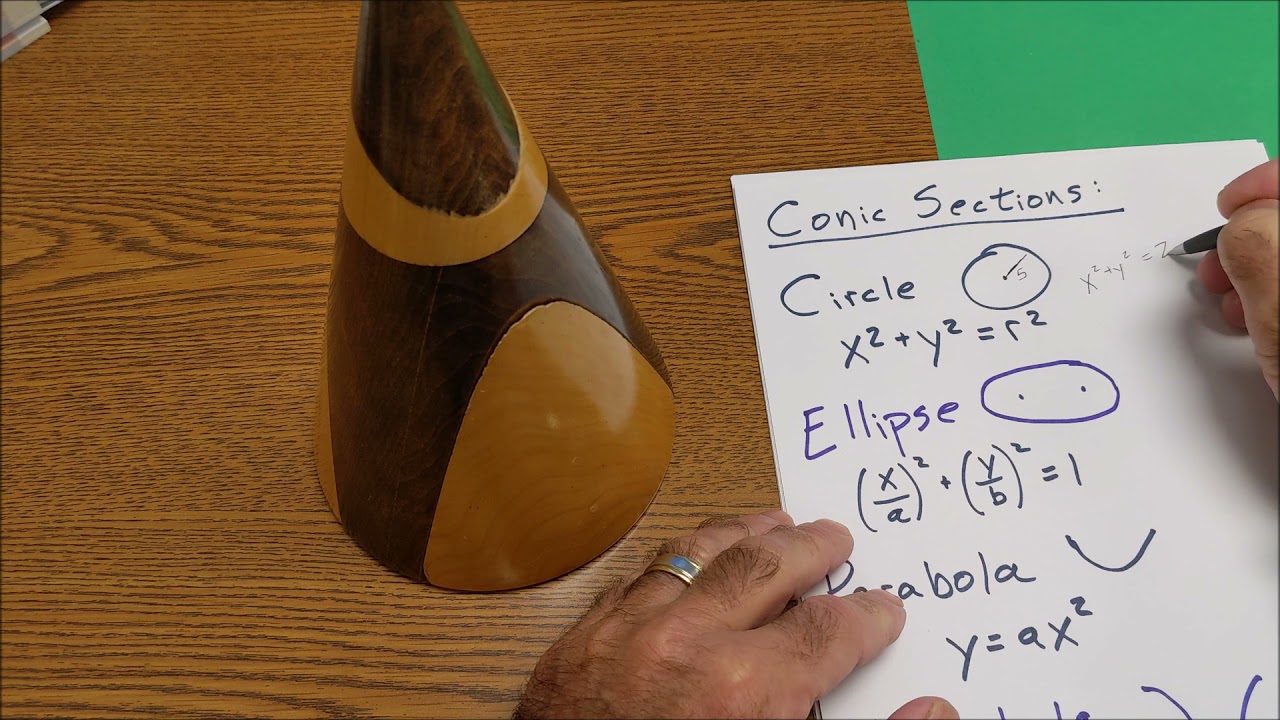 Conic Sections:
Circle
5
x² + y² = 2
x² + y² = r²
Ellipse
(x/a)² + (y/b)² = 1
Parabola
y = ax²